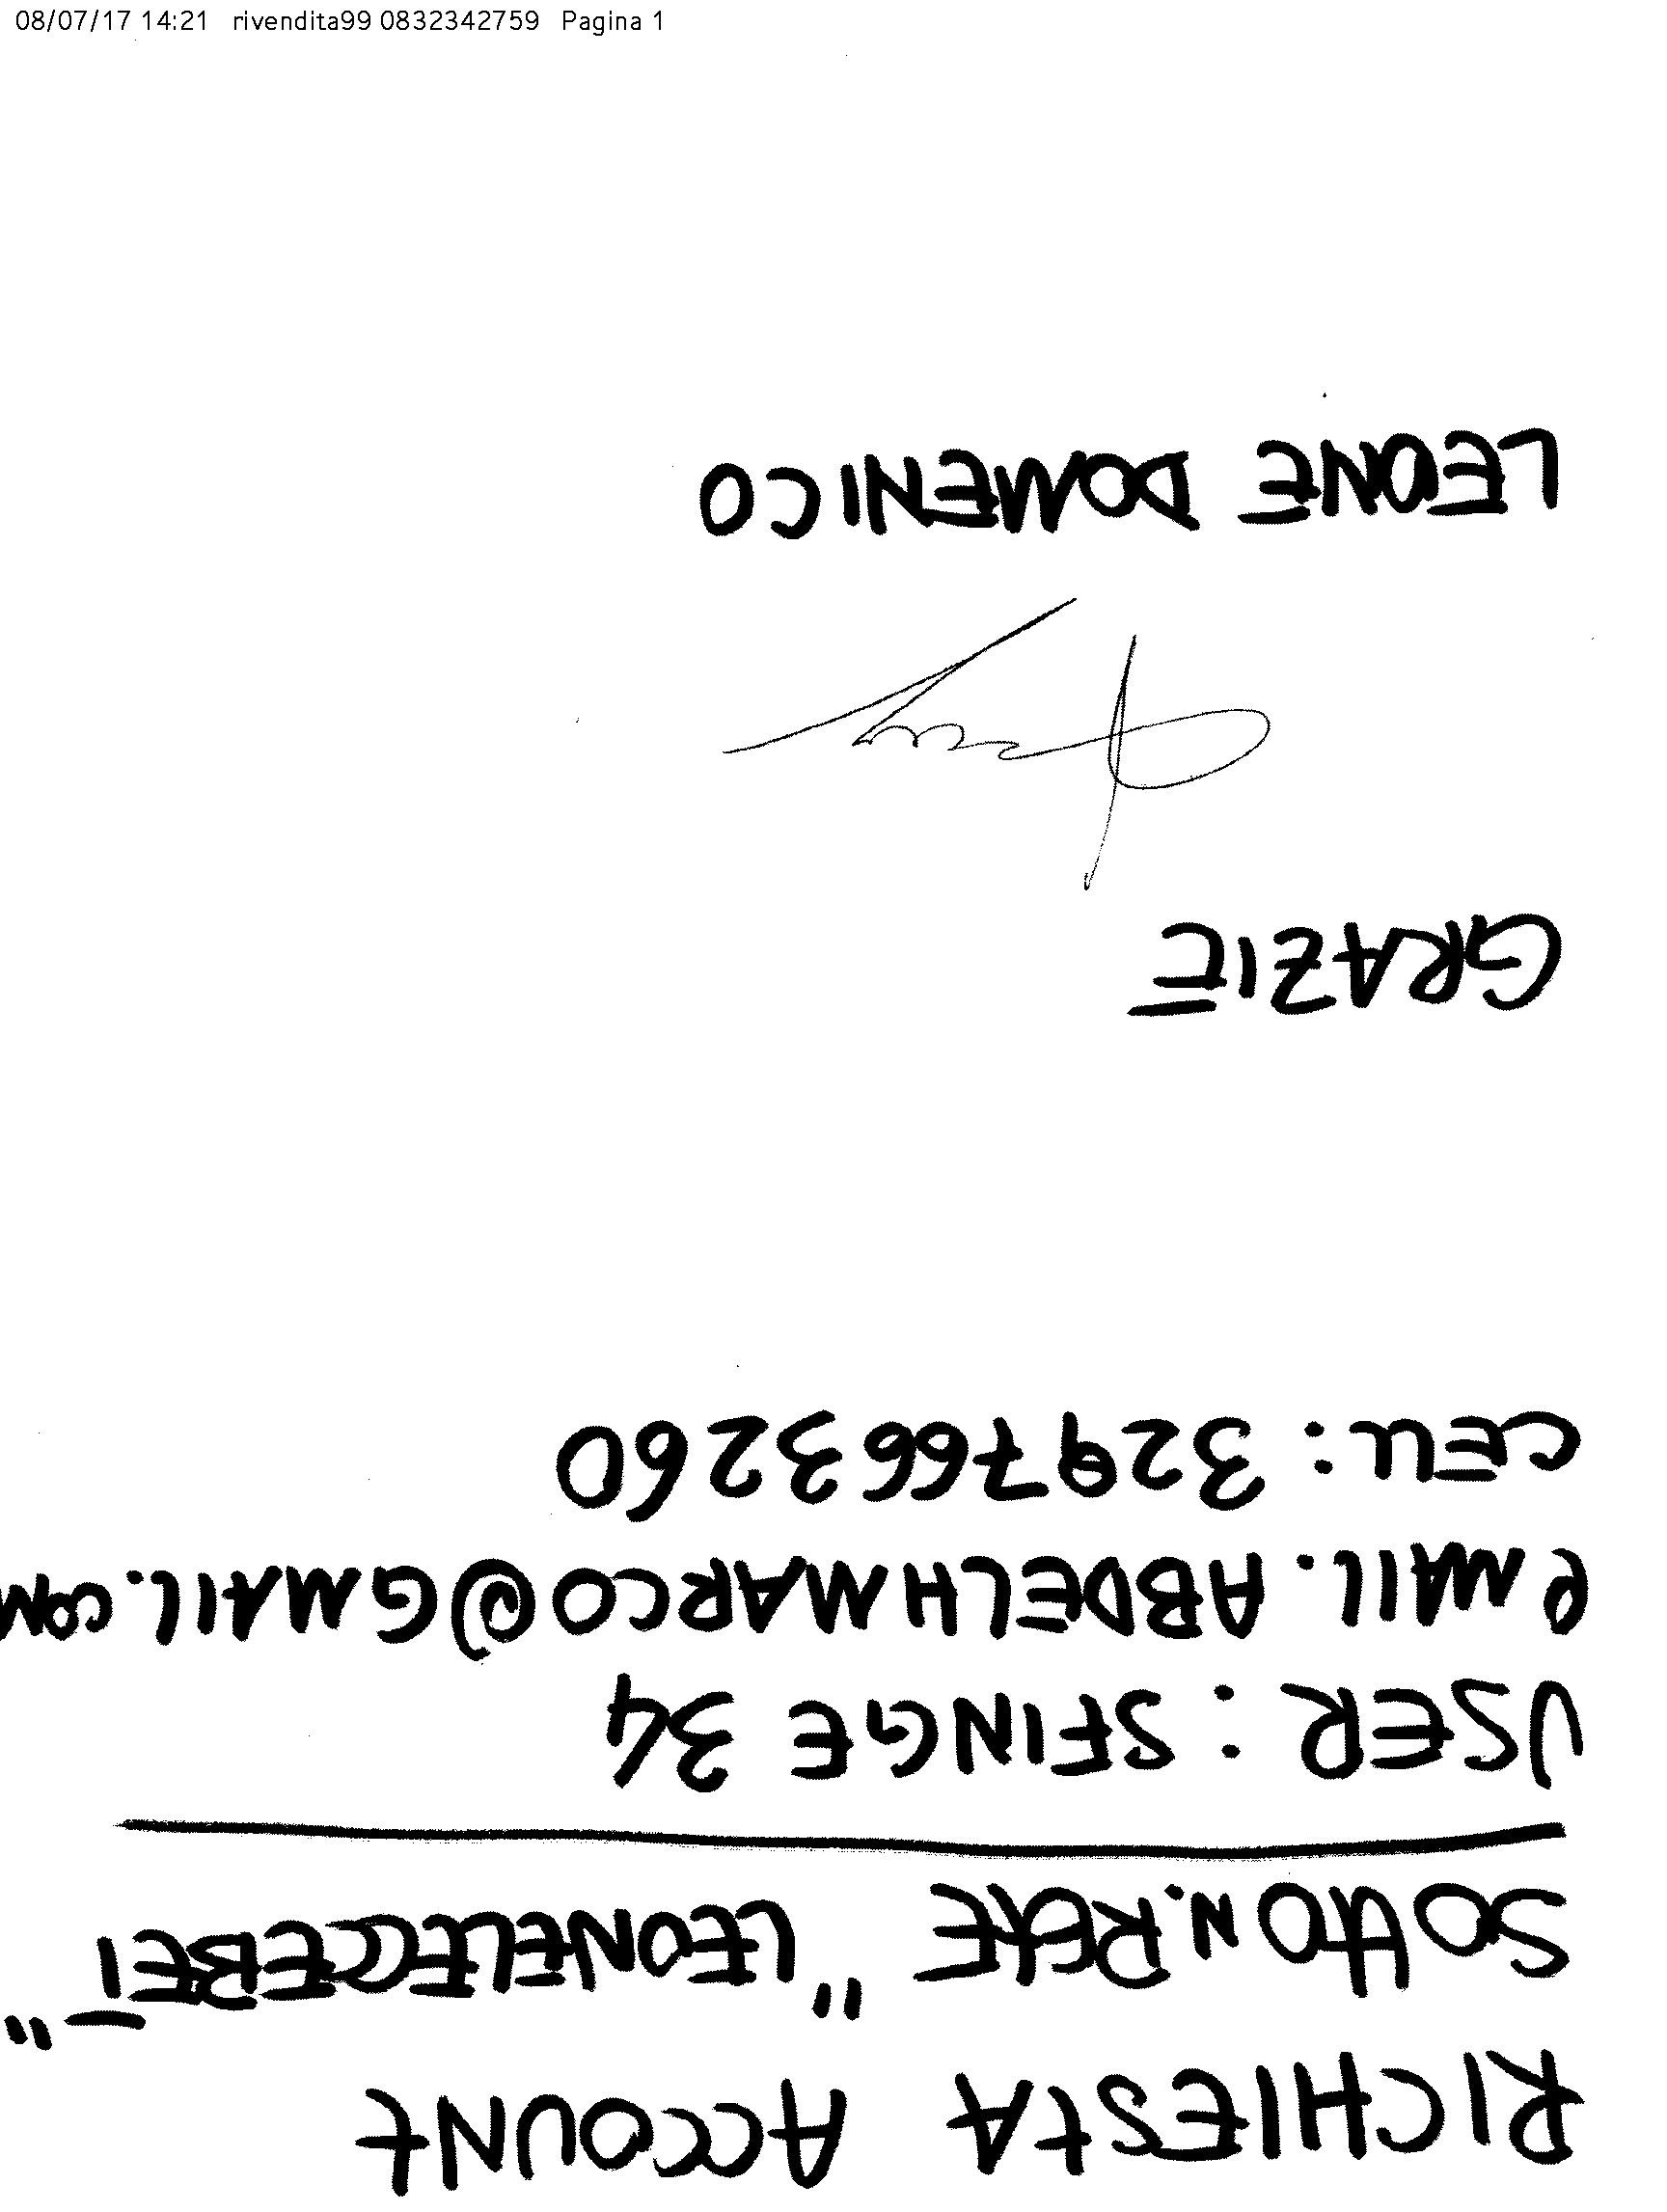 08/07/17 14:21 rivendita99 0832342759 Pagina 1
RICHIESTA ACCOUNT
SOTTO N. RETE "LEONELECCEBET"
USER : SFINGE 34
e MAIL. ABDELHMARCO@GMAIL.COM
CELL: 3297663260
GRAZIE
LEONE DOMENICO